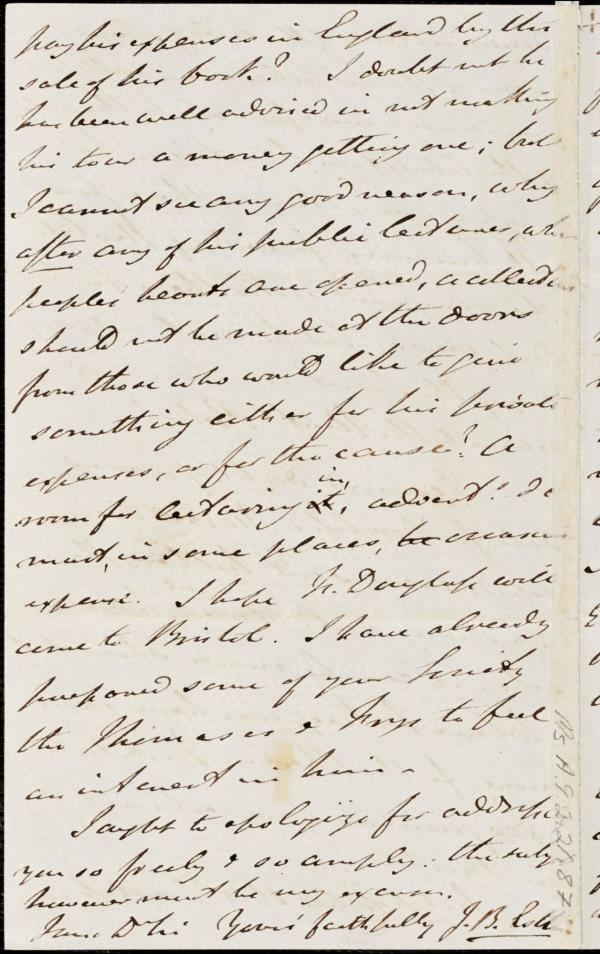 pay his expenses in England by the
sale of his book? I doubt not he
has been well advised in not making
his tour a money getting one; but
I cannot see any good reason, why
after any of his public lectures, wh
peoples hearts are opened, a collection
should not be made at the doors
from those who would like to give
something either for his private
expenses, or for the cause? A
room for lecturing in, advent.s &c
must, in some places, be occasion
expense. I hope Fr. Douglass will
come to Bristol. I have already
prepared some of your Society
the Thomases & Frys to feel
an interest in him -
I ought to apologize for addressg
you so freely & so amply: the subj
however must be my excuse.
Yours faithfully J. B. Estlin
Ms. A. 9. 2. 21. 87